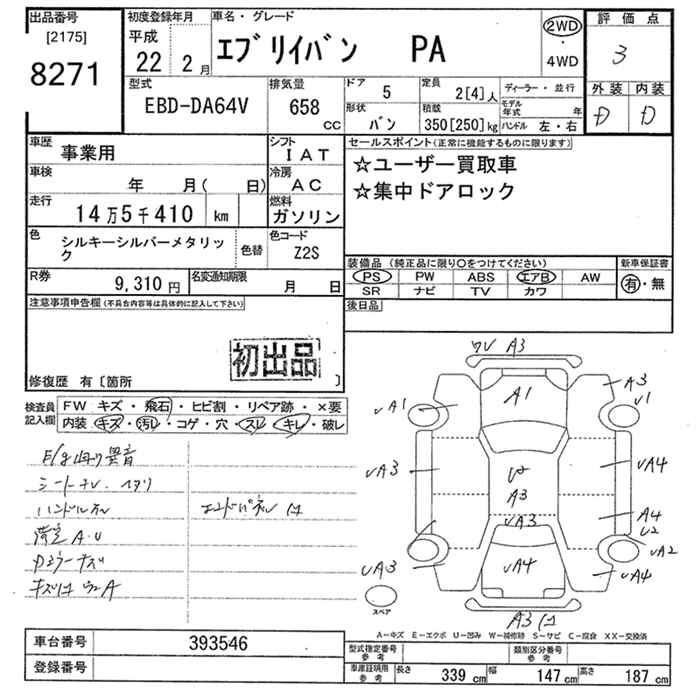 出品番号
[2175]
8271
初度登録年月
平成
22年 2月
車名・グレード
エブリイバン PA
2WD
・
4WD
評価点
3
外装 内装
D D
型式
EBD-DA64V
排気量
658
cc
ドア
5
定員
2[4]人
ディーラー・並行
モデル年式 年
形状
バン
積載
350[250]kg
ハンドル 左・右
車歴
事業用
シフト
IAT
車検
年 月( 日)
冷房
AC
走行
14万5千410 km
燃料
ガソリン
色
シルキーシルバーメタリック
色替
色コード
Z2S
R券
9,310円
名変通知期限
月 日
セールスポイント(正常に機能するものに限ります)
☆ユーザー買取車
☆集中ドアロック
装備品 (純正品に限り○をつけてください)
PS PW ABS エアB AW
SR ナビ TV カワ
新車保証書
有・無
後日品
注意事項申告欄(不具合内容等は具体的に記入して下さい)
初出品
修復歴 有〔箇所 〕
検査員記入欄
FW キズ・飛石・ヒビ割・リペア跡・×要
内装 キズ・汚レ・コゲ・穴・スレ・キレ・破レ
異音
A.U
ワV A3
A1
A3
UA1
U1
UA3
UA4
A3
UA3
A4
U2
UA2
UA3
UA4
UA4
スペア
A3
A−キズ E−エクボ U−凹み W−補修跡 S−サビ C−腐食 XX−交換済
車台番号
393546
登録番号
型式指定番号
参考
類別区分番号
参考
車庫証明用
参考
長さ 339 cm 幅 147 cm 高さ 187 cm